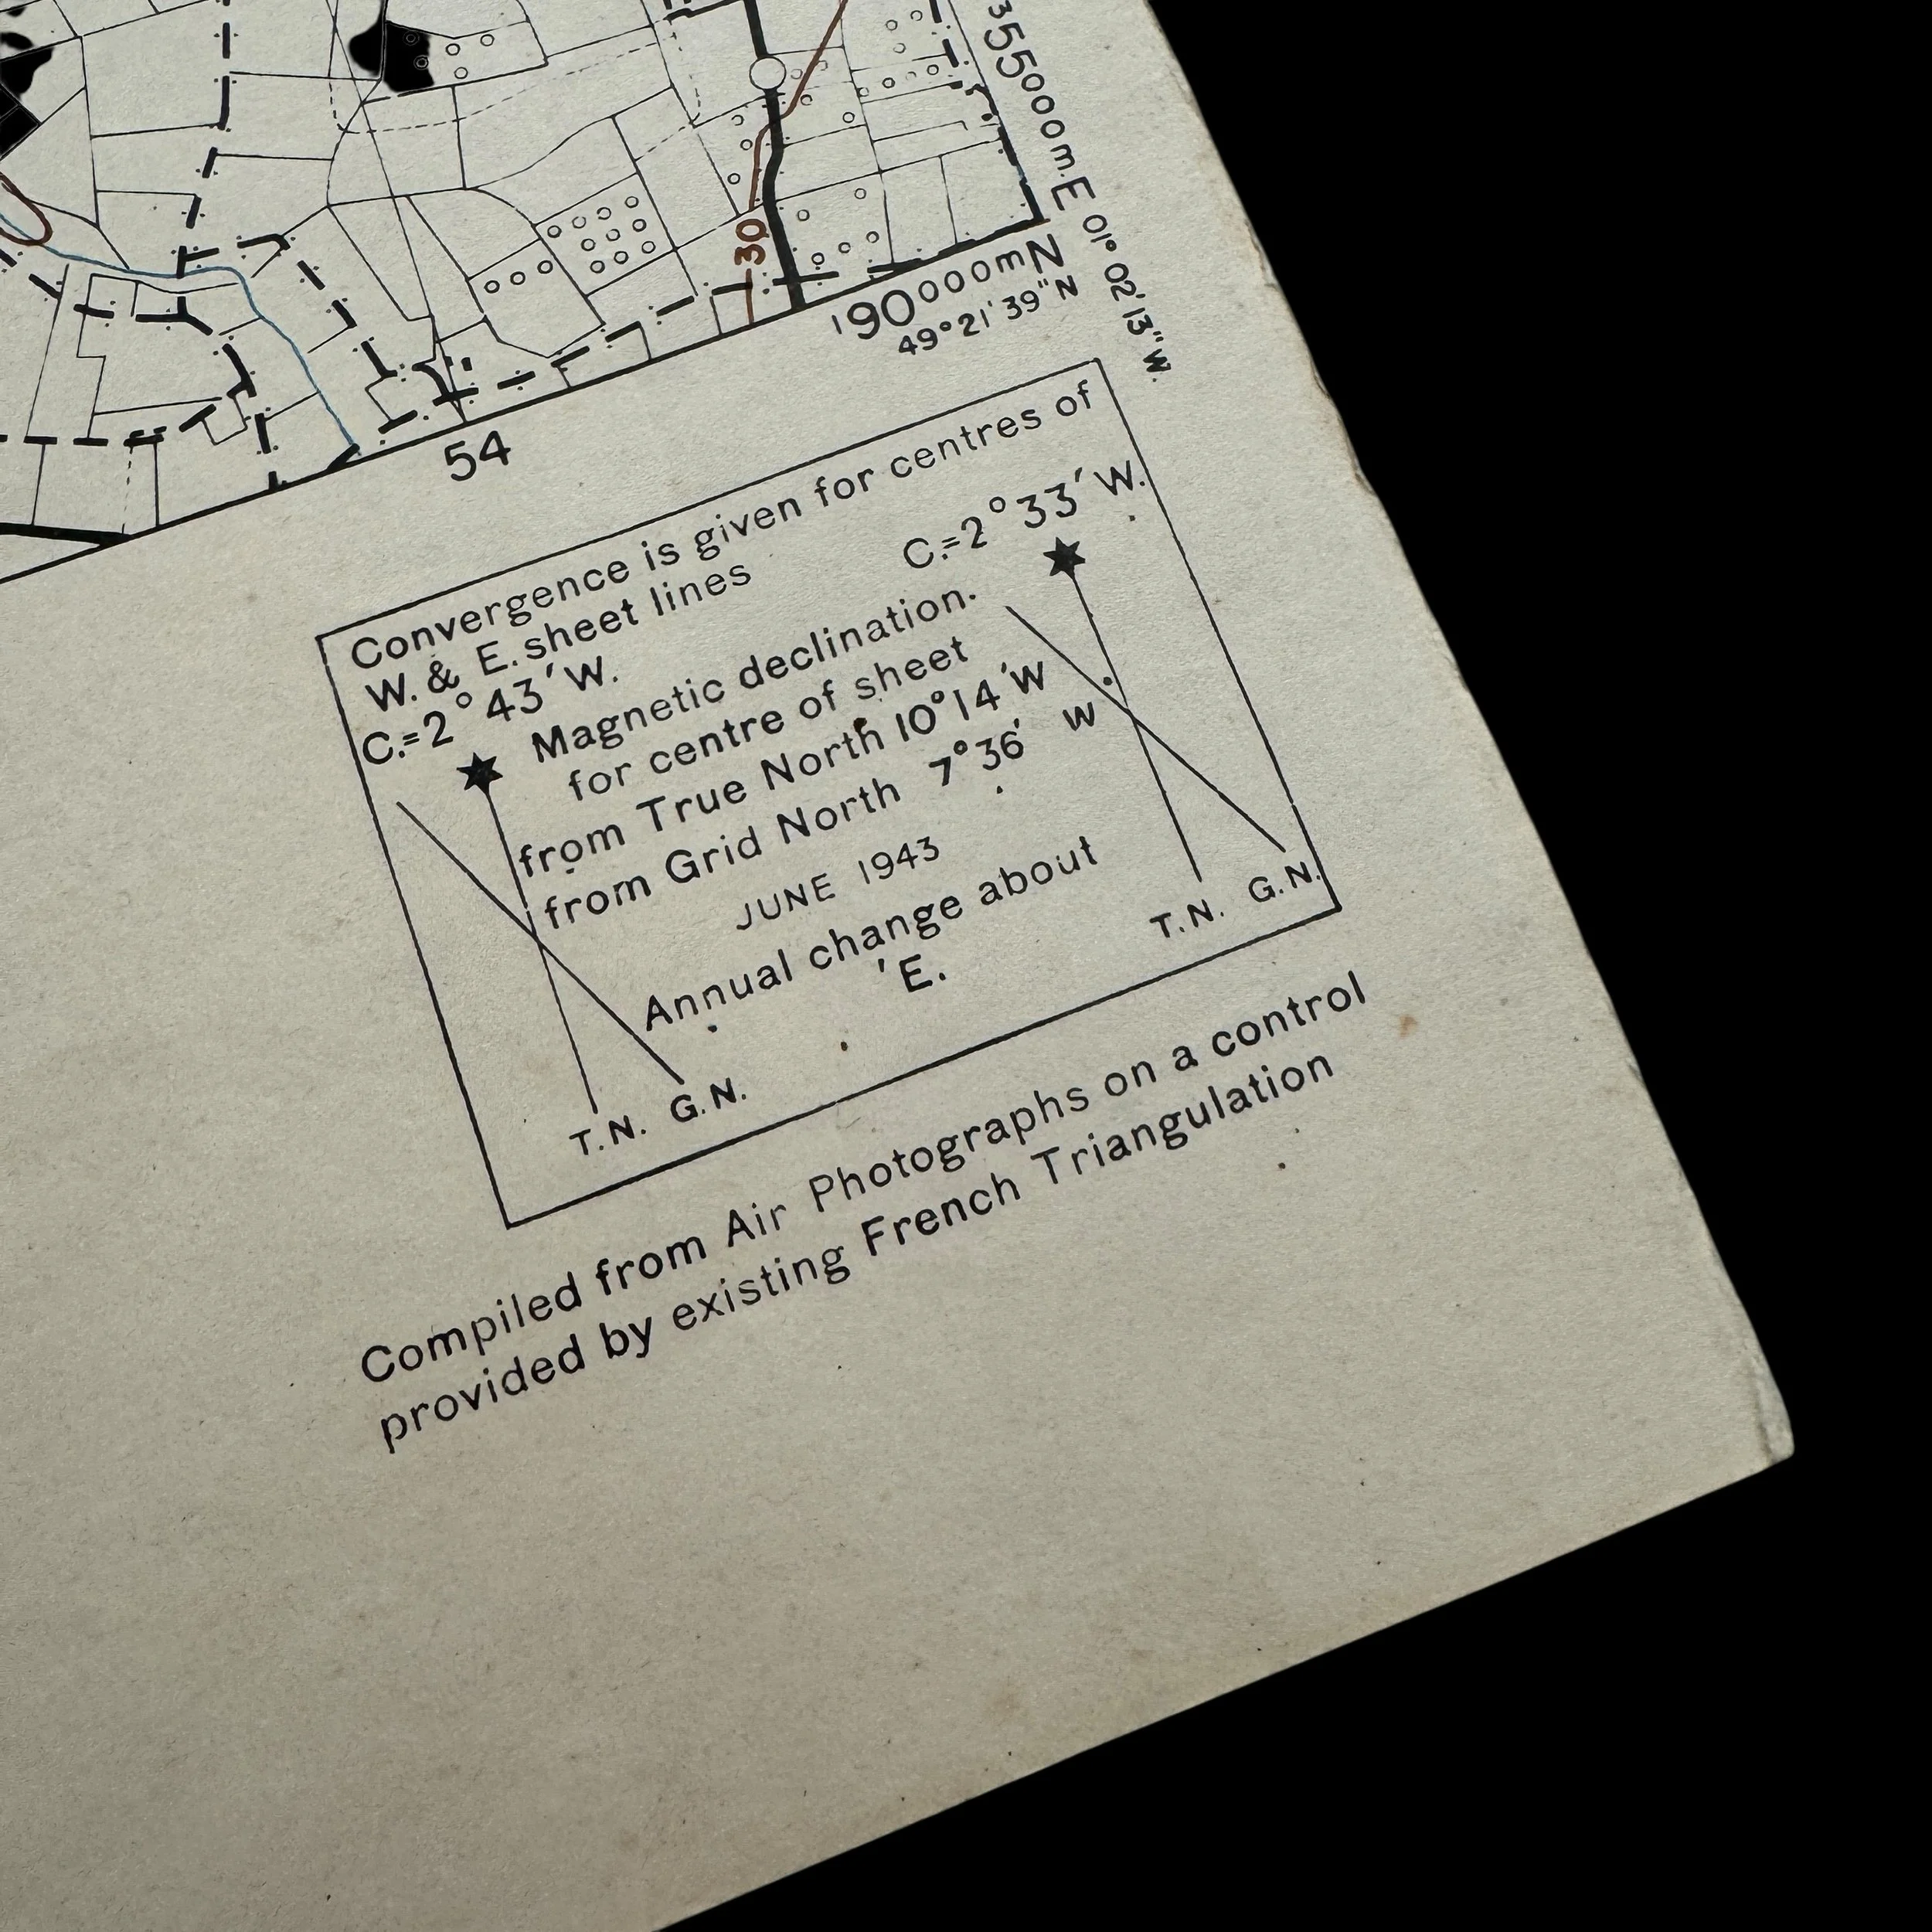 ³55000m.E 01° 02' 13" W.
30
¹90000mN
49° 21' 39" N
54
Convergence is given for centres of
W. & E. sheet lines
C.=2° 33' W.
C.=2° 43' W.
Magnetic declination.
for centre of sheet
from True North 10° 14' W
from Grid North 7° 36' W
JUNE 1943
Annual change about
'E.
T.N. G.N.
T.N. G.N.
Compiled from Air Photographs on a control
provided by existing French Triangulation